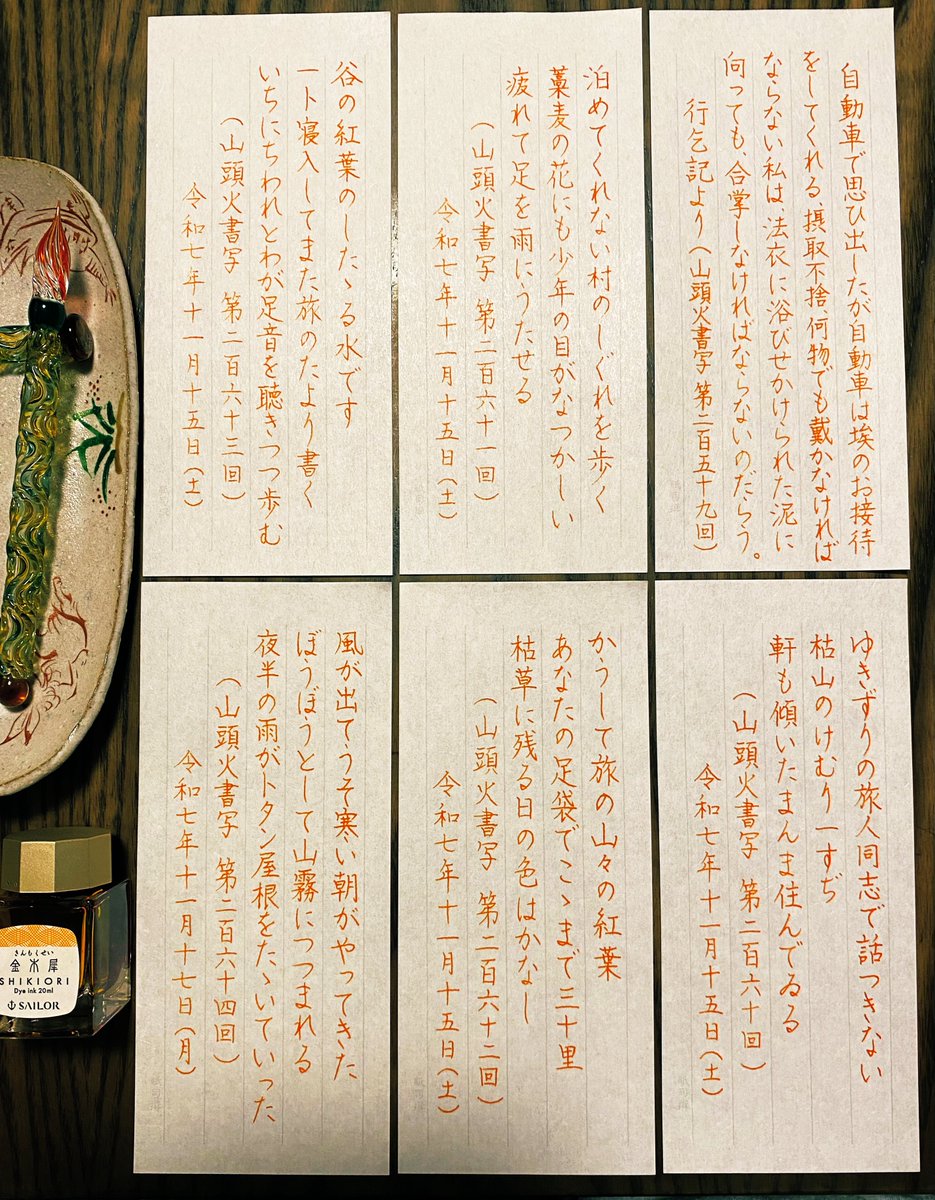 自動車で思ひ出したが自動車は埃のお接待
をしてくれる、摂取不捨、何物でも戴かなければ
ならない私は、法衣に浴びせかけられた泥に
向っても、合掌しなければならないのだらう。
行乞記より(山頭火書写 第二百五十九回)
ゆきずりの旅人同志で話つきない
枯山のけむり一すぢ
軒も傾いたまんま住んでゐる
(山頭火書写 第二百六十回)
令和七年十一月十五日(土)
泊めてくれない村のしぐれを歩く
藁麦の花にも少年の目がなつかしい
疲れて足を雨にうたせる
(山頭火書写 第二百六十一回)
令和七年十一月十五日(土)
かうして旅の山々の紅葉
あなたの足袋でこゝまで三十里
枯草に残る日の色はかなし
(山頭火書写 第二百六十二回)
令和七年十一月十五日(土)
谷の紅葉のしたゝる水です
一ト寝入してまた旅のたより書く
いちにちわれとわが足音を聴きつつ歩む
(山頭火書写 第二百六十三回)
令和七年十一月十五日(土)
風が出てうそ寒い朝がやってきた
ぼうぼうとして山霧につつまれる
夜半の雨がトタン屋根をたゝいていった
(山頭火書写 第二百六十四回)
令和七年十一月十七日(月)
きんもくせい
金木犀
SHIKIORI
Dye ink 20ml
SAILOR